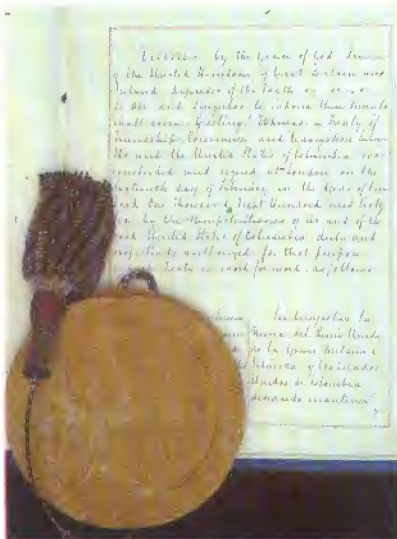 by the Grace of God
of the United Kingdom of Great Britain and
Ireland Defender of the Faith
to All and Singular to whom these Presents
shall come Greeting! Whereas a Treaty of
Friendship, Commerce and Navigation between
Us and the United States of Colombia was
concluded and signed at London on the
sixteenth day of February in the Year of Our
Lord One Thousand Eight Hundred and Sixty
Six by the Plenipotentiaries of Us and of the
said United States of Colombia, duly and
respectively authorized for that purpose
Treaty is word for word as follows
Su Majestad la
Reina del Reino Unido
de la Gran Bretaña e
Irlanda y los Estados
Unidos de Colombia
deseando mantener